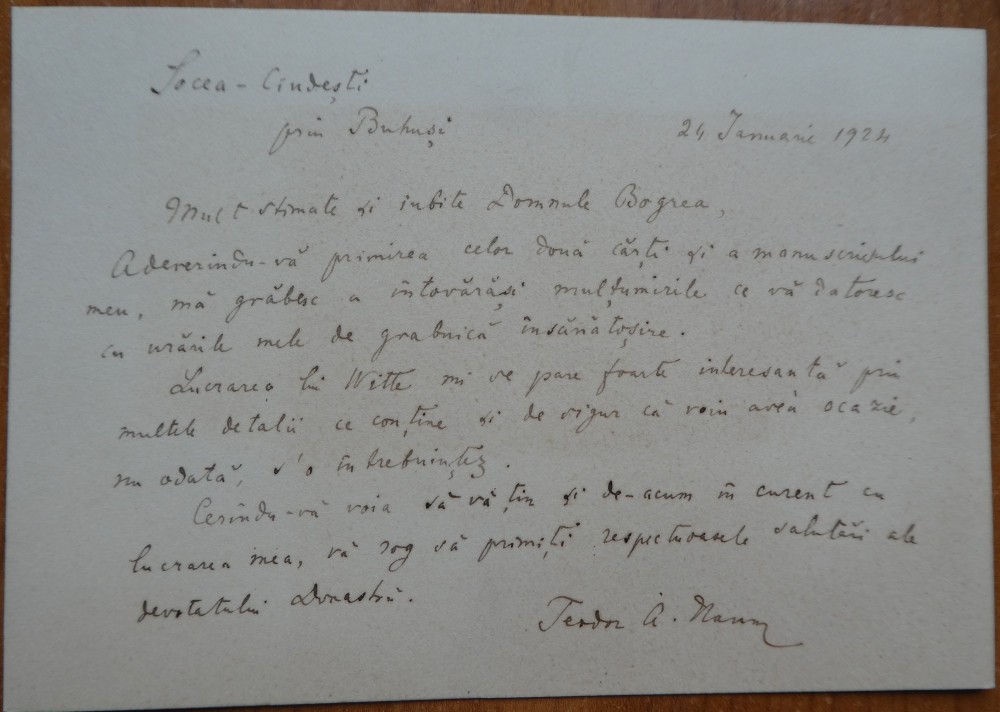 Socea - Cindești
prin Buhuși
24 Ianuarie 1924
Mult stimate și iubite Domnule Bogrea,
Adeverindu-vă primirea celor două cărți și a manuscrisului
meu, mă grăbesc a întovărăși mulțumirile ce vă datoresc
cu urările mele de grabnică însănătoșire.
Lucrarea lui Witte mi se pare foarte interesantă prin
multele detalii ce conține și de sigur că voiu aveà ocazie,
nu odată, s'o întrebuințez.
Cerîndu-vă voia să vă țin și de-acum în curent cu
lucrarea mea, vă rog să primiți respectuoasele salutări ale
devotatului Dvoastră.
Teodor A. Naum